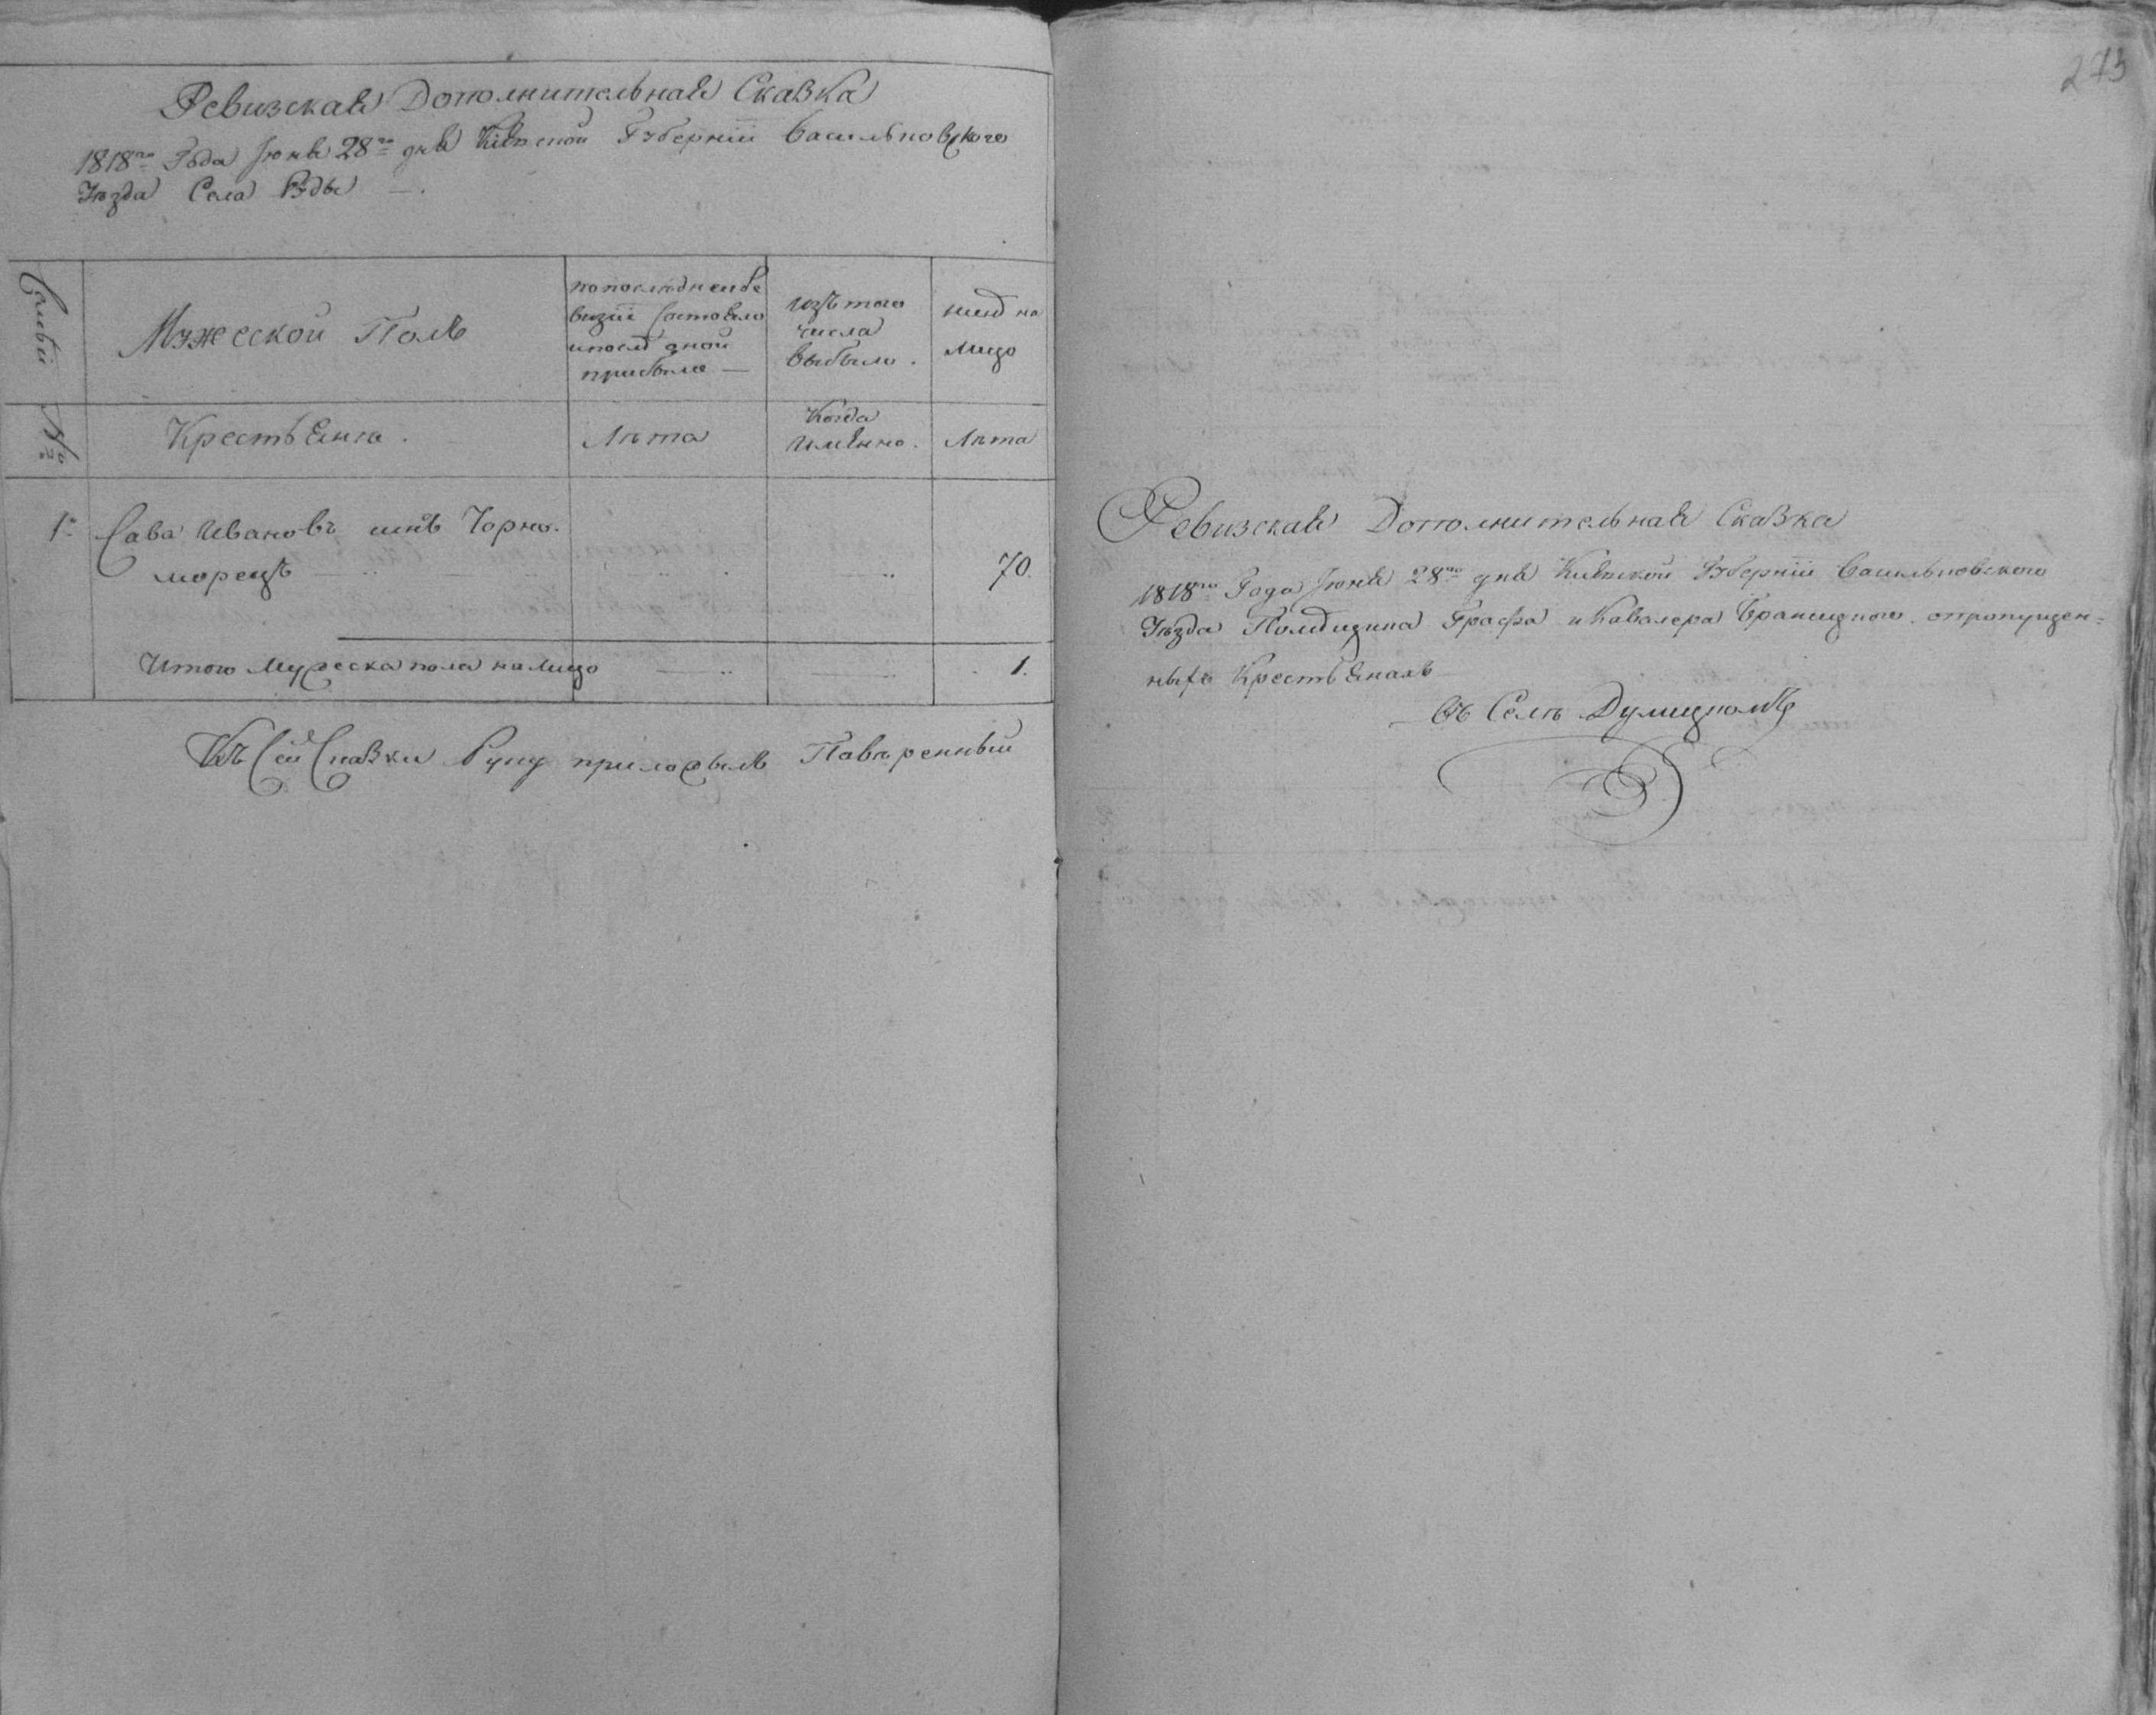 Ревизская Дополнительная Сказка
1818го Года Июня 28го дня Киевской Губернии Васильковского
Уезда Села Руды
Семьи
Мужеской Полъ
попоследнейре
визии Состояло
ипосле оной
прибыло
изъ того
числа
выбыло.
ныне на
лицо
№
Крестьяне.
Лета
Когда
имянно.
Лѣта
1. Сава Ивановъ сынъ Чорно.
морецъ
70.
Итого мужеска пола налицо 1.
Къ Сей Сказки Руку приложилъ Повѣренный
273
Ревизская Дополнительная Сказка
1818го Года Июня 28го дня Киевской Губернии Васильковского
Уѣзда Помещика Графа и Кавалера Браницкого. опропущен=
ныхъ Крестьянахъ
Въ Селѣ Дулицкомъ